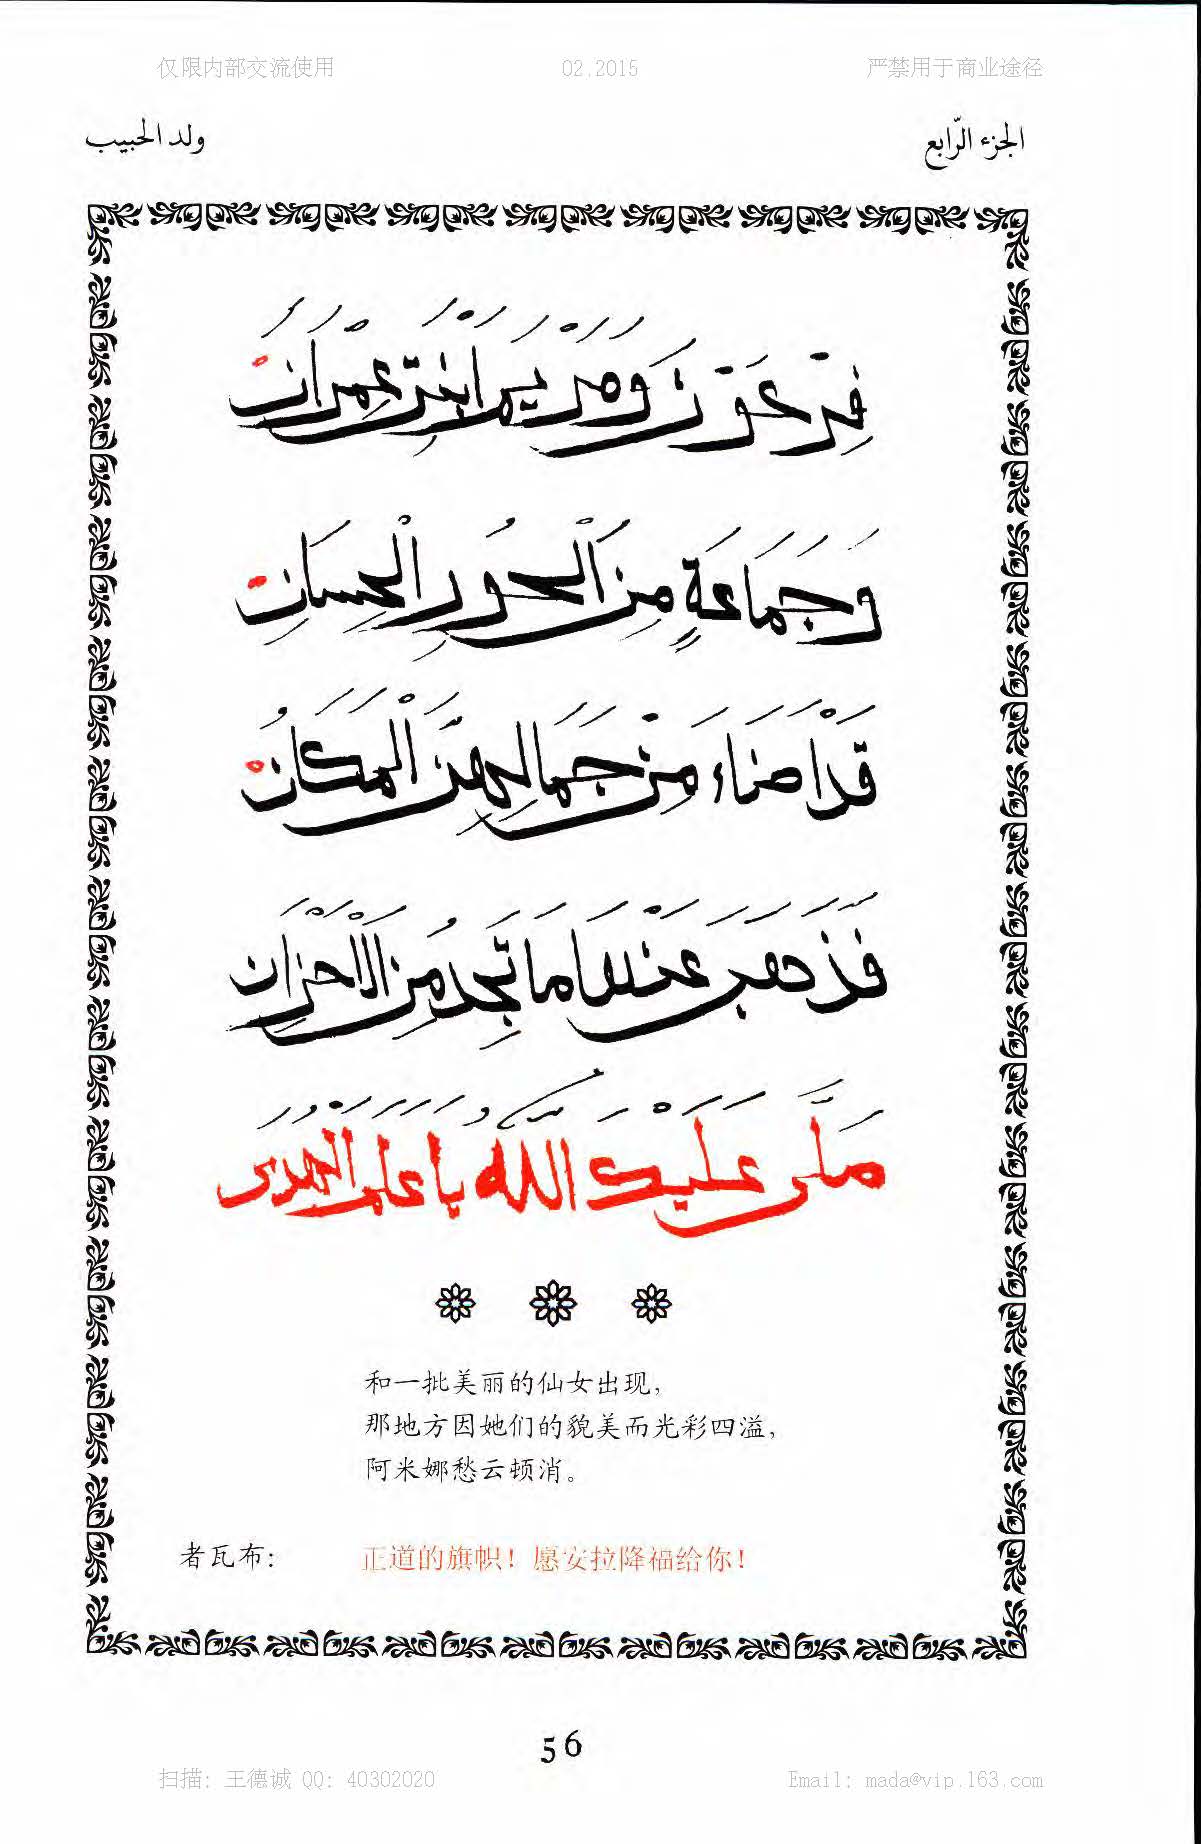 仅限内部交流使用 02.2015 严禁用于商业途径
الجزء الرّابع ولد الحبيب
فِرْعَوْنَ وَمَرْيَمَ ابْنَتِ عِمْرَانَ
وَجَمَاعَةٍ مِنَ الْحُورِ الْحِسَانِ
قَدْ اَضَاءَ مِنْ جَمَالِهِنَّ الْمَكَانُ
فَذَهَبَ عَنْهَا مَا تَجِدُ مِنَ الْاَحْزَانِ
صَلَّى عَلَيْكَ اللهُ يَا عَلَمَ الْهُدَى
和一批美丽的仙女出现，
那地方因她们的貌美而光彩四溢，
阿米娜愁云顿消。
者瓦布： 正道的旗帜！愿安拉降福给你！
56
扫描: 王德诚 QQ: 40302020 Email: mada@vip.163.com